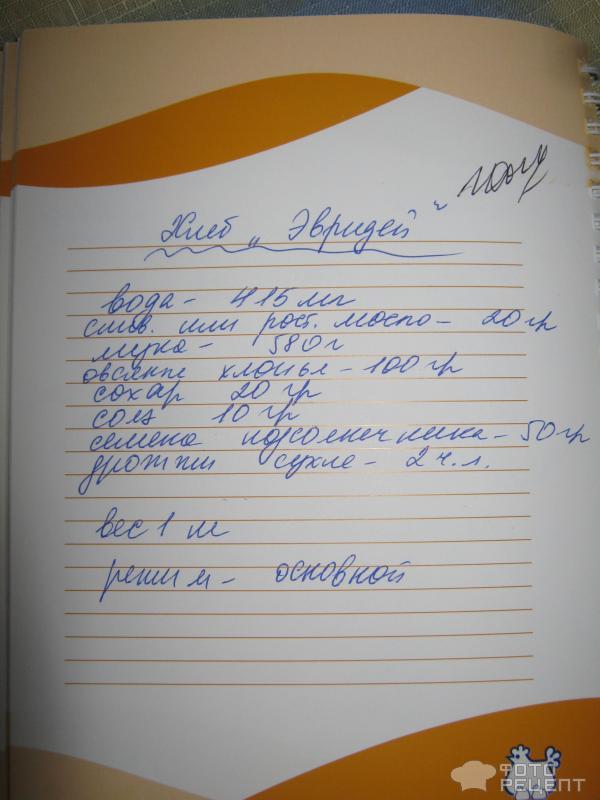 Хлеб „Эвридей"
вода - 415 мл
слив. или раст. масло - 20 гр
мука - 580 г
овсяные хлопья - 100 гр
сахар 20 гр
соль 10 гр
семена подсолнечника - 50 гр
дрожжи сухие - 2 ч.л.
вес 1 кг
режим - основной
ФОТО
РЕЦЕПТ